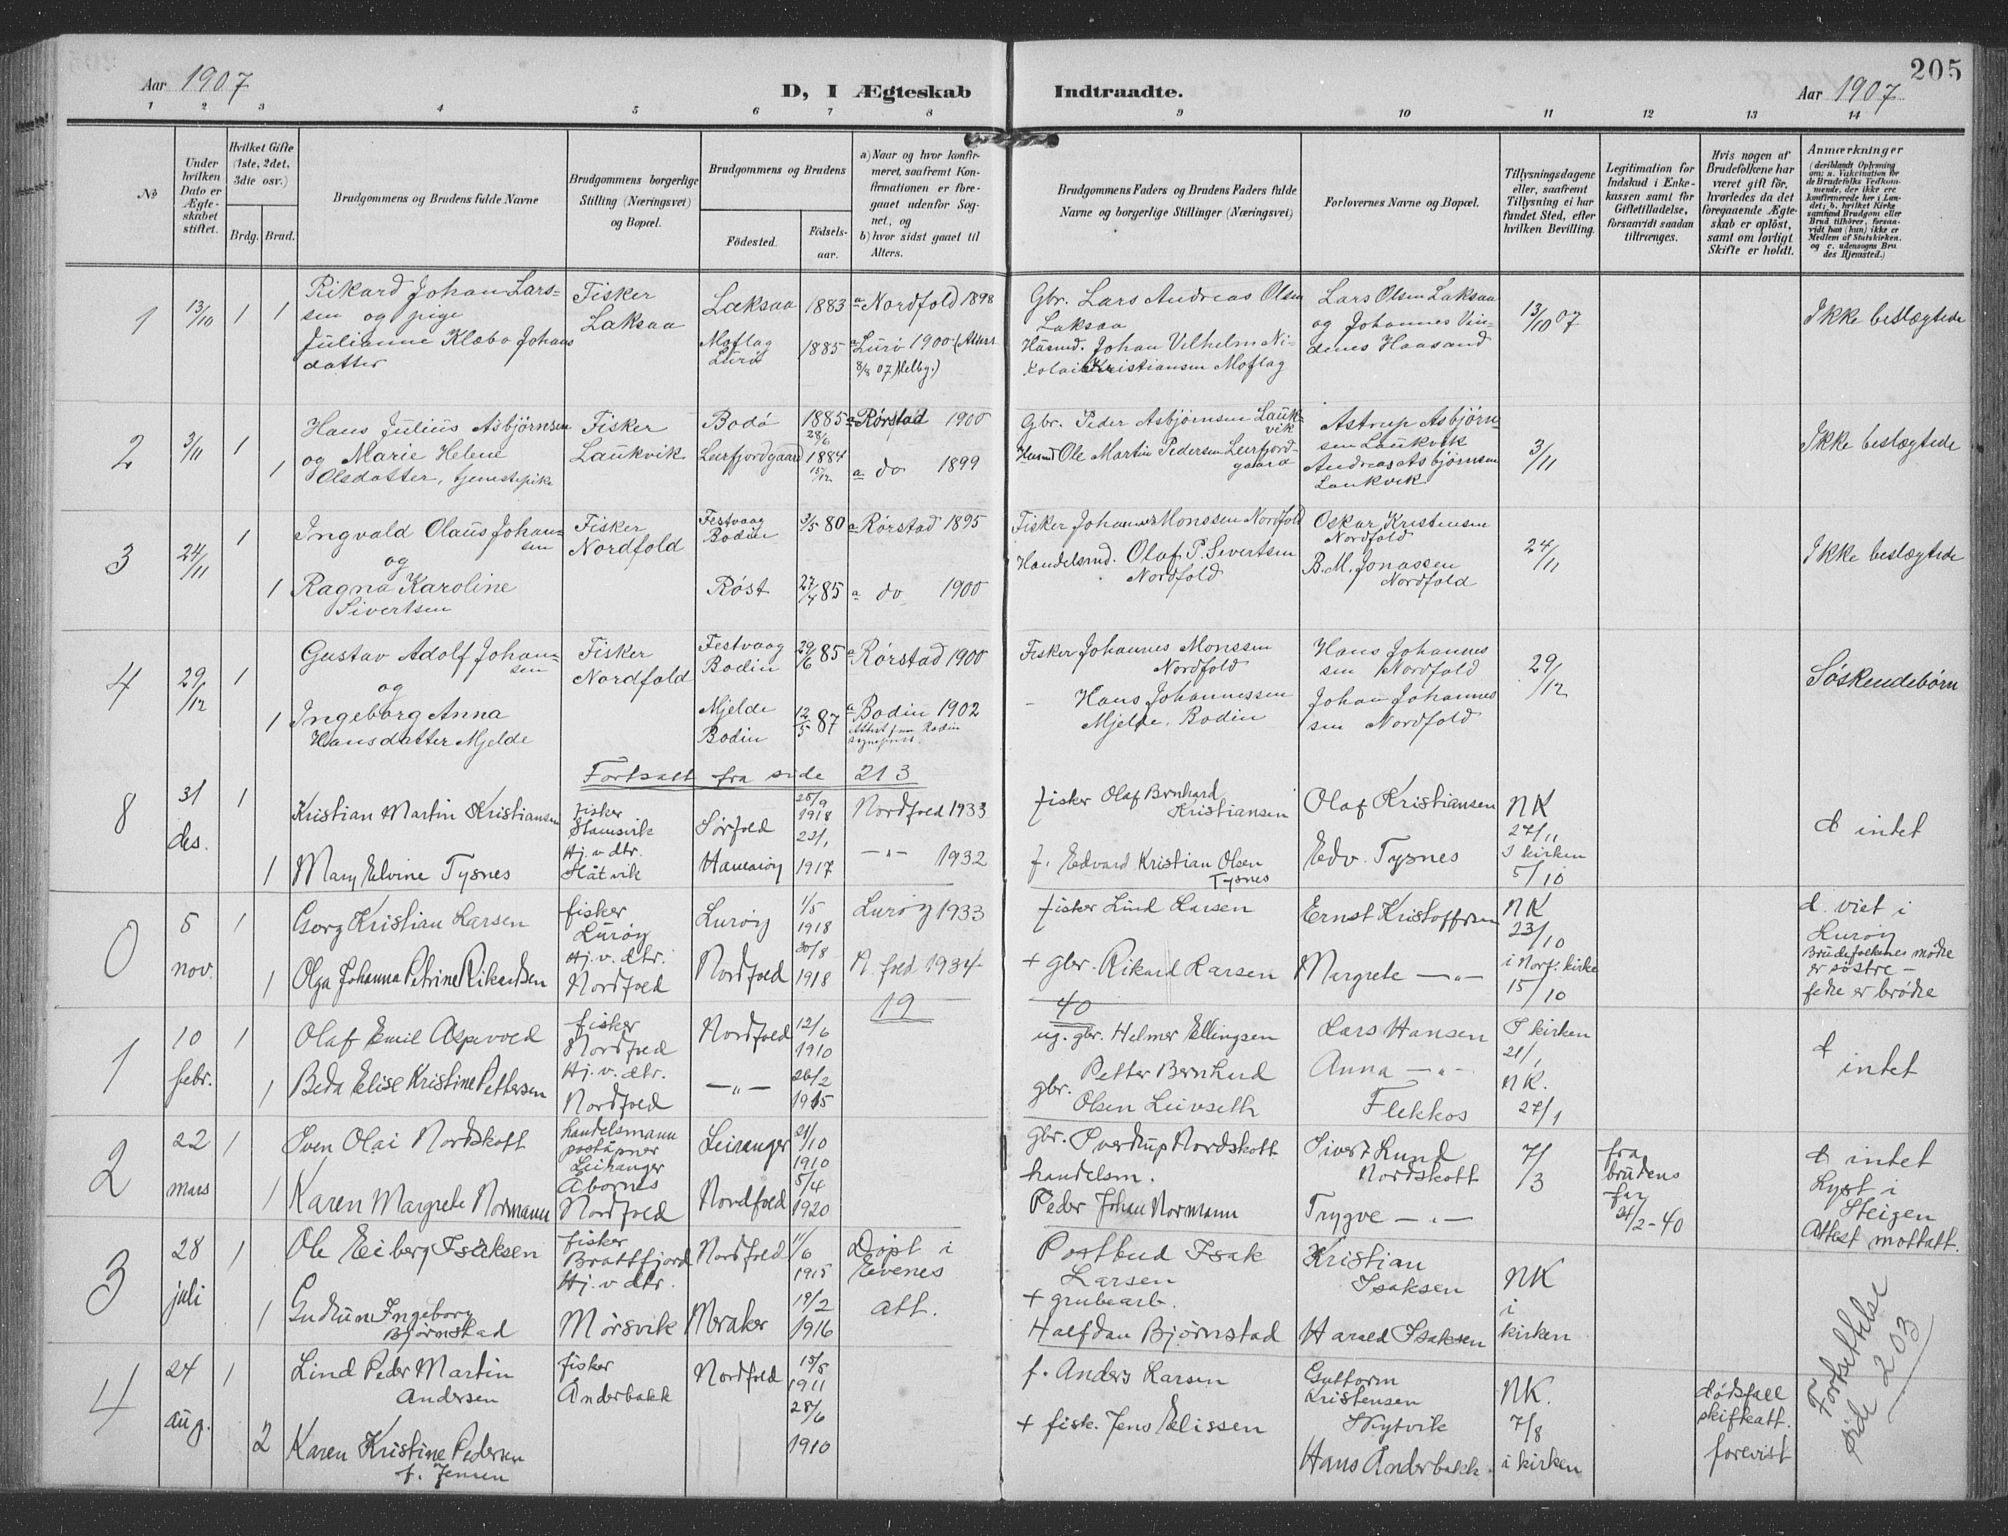 205
Aar 1907
D, I Ægteskab Indtraadte.
Aar 1907
1 2 3 4 5 6 7 8 9 10 11 12 13 14
No
Under hvilken Dato er Ægteskabet stiftet.
Hvilket Gifte (1ste, 2det, 3die osv.)
Brdg. Brud.
Brudgommens og Brudens fulde Navne
Brudgommens borgerlige Stilling (Næringsvei) og Bopæl.
Brudgommens og Brudens
Födested. Födsels-aar.
a) Naar og hvor konfirmeret, saafremt Konfirmationen er foregaaet udenfor Sognet, og
b) hvor sidst gaaet til Alters.
Brudgommens Faders og Brudens Faders fulde Navne og borgerlige Stillinger (Næringsvei)
Forlovernes Navne og Bopæl.
Tillysningsdagene eller, saafremt Tillysning ei har fundet Sted, efter hvilken Bevilling.
Legitimation for Indskud i Enkekassen samt for Giftetilladelse, forsaavidt saadan tiltrænges.
Hvis nogen af Brudefolkene har været gift för, hvorledes da det foregaaende Ægteskab er oplöst, samt om lovligt Skifte er holdt.
Anmærkninger
(deriblandt Oplysning om: a. Vakcination for de Brudefolks Vedkommende, der ikke ere konfirmerede her i Landet; b. hvilket Kirkesamfund Brudgom eller Brud tilhörer, forsaavidt han (hun) ikke er Medlem af Statskirken. og c. udensogns Brudes Hjemsted.)
1 13/10 1 1
Rikard Johan Lars-
sen og pige
Julianne Klæbo Johans
datter
Fisker
Laksaa
Laksaa 1883 a Nordfold 1898
Moflag
Lurö 1885 a Lurö 1900 (Alters
8/8 07 Melby.)
Gbr. Lars Andreas Olsen
Laksaa
Husmd. Johan Vilhelm Ni-
kolai Kristiansen Moflag
Lars Olsen Laksaa
og Johannes Vin-
denes Haasand
13/10 07
Ikke beslægtede
2 3/11 1 1
Hans Julius Asbjørnsen
og Marie Helene
Olsdatter, tjenestepike
Fisker
Laukvik
Bodø 1885 28/6 a Rørstad 1900
Leirfjordgaard 1884 15/12 a do 1899
Gbr. Peder Asbjørnsen Lauk-
vik
Husmd Ole Martin Pedersen Leirfjord-
gaard
Astrup Asbjørn-
sen Laukvik
Andreas Asbjørnsen
Laukvik
3/11
Ikke beslægtede
3 24/11 1 1
Ingvald Olaus Johan-
sen
og
Ragna Karoline
Sivertsen
Fisker
Nordfold
Festvaag
Bodin 3/5 80 a Rørstad 1895
Røst 27/4 85 a do 1900
Fisker Johannes Monssen Nordfold
Handelsmd. Olaf P. Sivertsen
Nordfold
Oskar Kristensen
Nordfold
B. M. Jonassen
Nordfold
24/11
Ikke beslægtede
4 29/12 1 1
Gustav Adolf Johan-
sen
og
Ingeborg Anna
Hansdatter Mjelde
Fisker
Nordfold
Festvaag
Bodin 29/6 85 a Rørstad 1900
Mjelde
Bodin 12/5 87 a Bodin 1902
Attest fra Bodin
sognepr.
Fisker Johannes Monssen
Nordfold
- Hans Johannessen
Mjelde. Bodin
Hans Johannes
sen Nordfold
Johan Johannes
sen Nordfold
29/12
Søskendebørn
Fortsatt fra side 213
8 31 des. 1 1
Kristian Martin Kristiansen
Mary Elvine Tysnes
fisker
Stamsvik
Hj. v. dtr.
Slåtvik
Sørfold 25/9 1918 Nordfold 1933
Hamarøy 22/1 1917 — " — 1932
fisker Olaf Bernhard
Kristiansen
f. Edvard Kristian Olsen
Tysnes
Olaf Kristiansen
Edv. Tysnes
NK
27/11
I kirken
5/10
d intet
0 5 nov. 1 1
Georg Kristian Larsen
Olga Johanna Petrine Rikardsen
fisker
Lurøy
Hj. v. dtr.
Nordfold
Lurøy 1/5 1918 Lurøy 1933
Nordfold 30/8 1918 N. fold 1934
fisker Lind Larsen
+ gbr. Rikard Larsen
Ernst Kristoffersen
Margrete — " —
NK
23/10
i Norf. kirke
15/10
d. viet i
Lurøy
Brudefolkenes mødre
er søstre —
fedre er brødre
19 40
1 10 febr. 1 1
Olaf Emil Aspevold
Beda Elise Kristine Pettersen
fisker
Nordfold
Hj. v. dtr.
Nordfold
Nordfold 12/6 1910
— " — 26/2 1915
ug. gbr. Helmer Ellingsen
gbr. Petter Bernhard
Olsen Leivseth
Lars Hansen
Anna — " —
Flekkos
I kirken
21/1
NK.
27/1
d
intet
2 22 mars 1 1
Sven Olai Nordskott
Karen Margrete Normann
handelsmann
poståpner
Leiranger
Åbornes
Nordfold
Leiranger 21/10 1910
Nordfold 5/4 1920
gbr. Sverdrup Nordskott
handelsm.
Peder Johan Normann
Sivert Lund
Nordskott
Trygve — " —
7/3
fra
brudens
far
21/2-40
d intet
Lyst i
Steigen
Attest mottatt.
3 28 juli 1 1
Ole Eiberg Isaksen
Gudrun Ingeborg
Bjørnstad
fisker
Brattfjord
Hj. v. dtr.
Mørsvik
Nordfold 11/6 1915
Meraker 19/2 1916
Døpt i
Evenes
att.
Postbud Isak
Larsen
+ grubearb.
Halfdan Bjørnstad
Kristian
Isaksen
Harald Isaksen
NK
i
kirken
4 24 aug. 1 2
Lind Peder Martin
Andersen
Karen Kristine Pedersen
f. Jensen
fisker
Anderbakk
Nordfold 15/5 1911
28/6 1910
f. Anders Larsen
+ fisk. Jens Elissen
Guttorm
Kristensen
Nytvik
Hans Anderbakk.
NK.
7/8
i kirken
dødsfall
skifteatt.
forevist
Fortsettelse
side 203